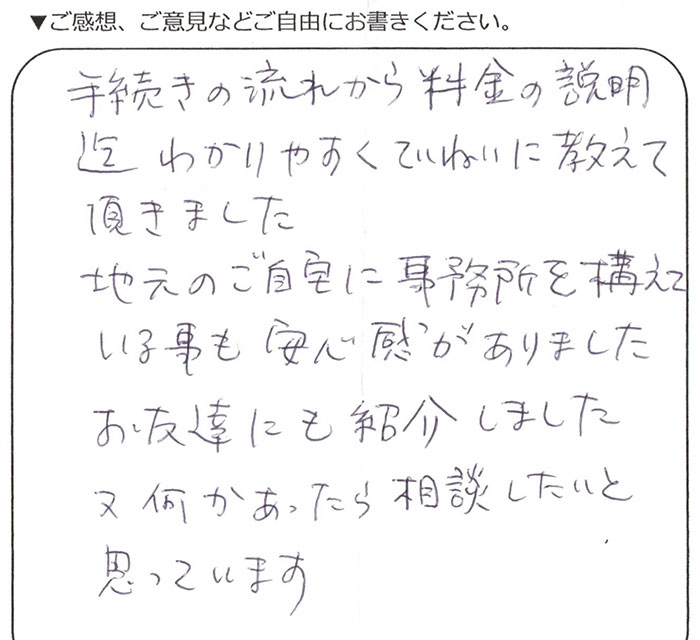 ▼ご感想、ご意見などご自由にお書きください。
手続きの流れから料金の説明
迄わかりやすくていねいに教えて
頂きました
地元のご自宅に事務所を構えて
いる事も安心感がありました
お友達にも紹介しました
又何かあったら相談したいと
思っています